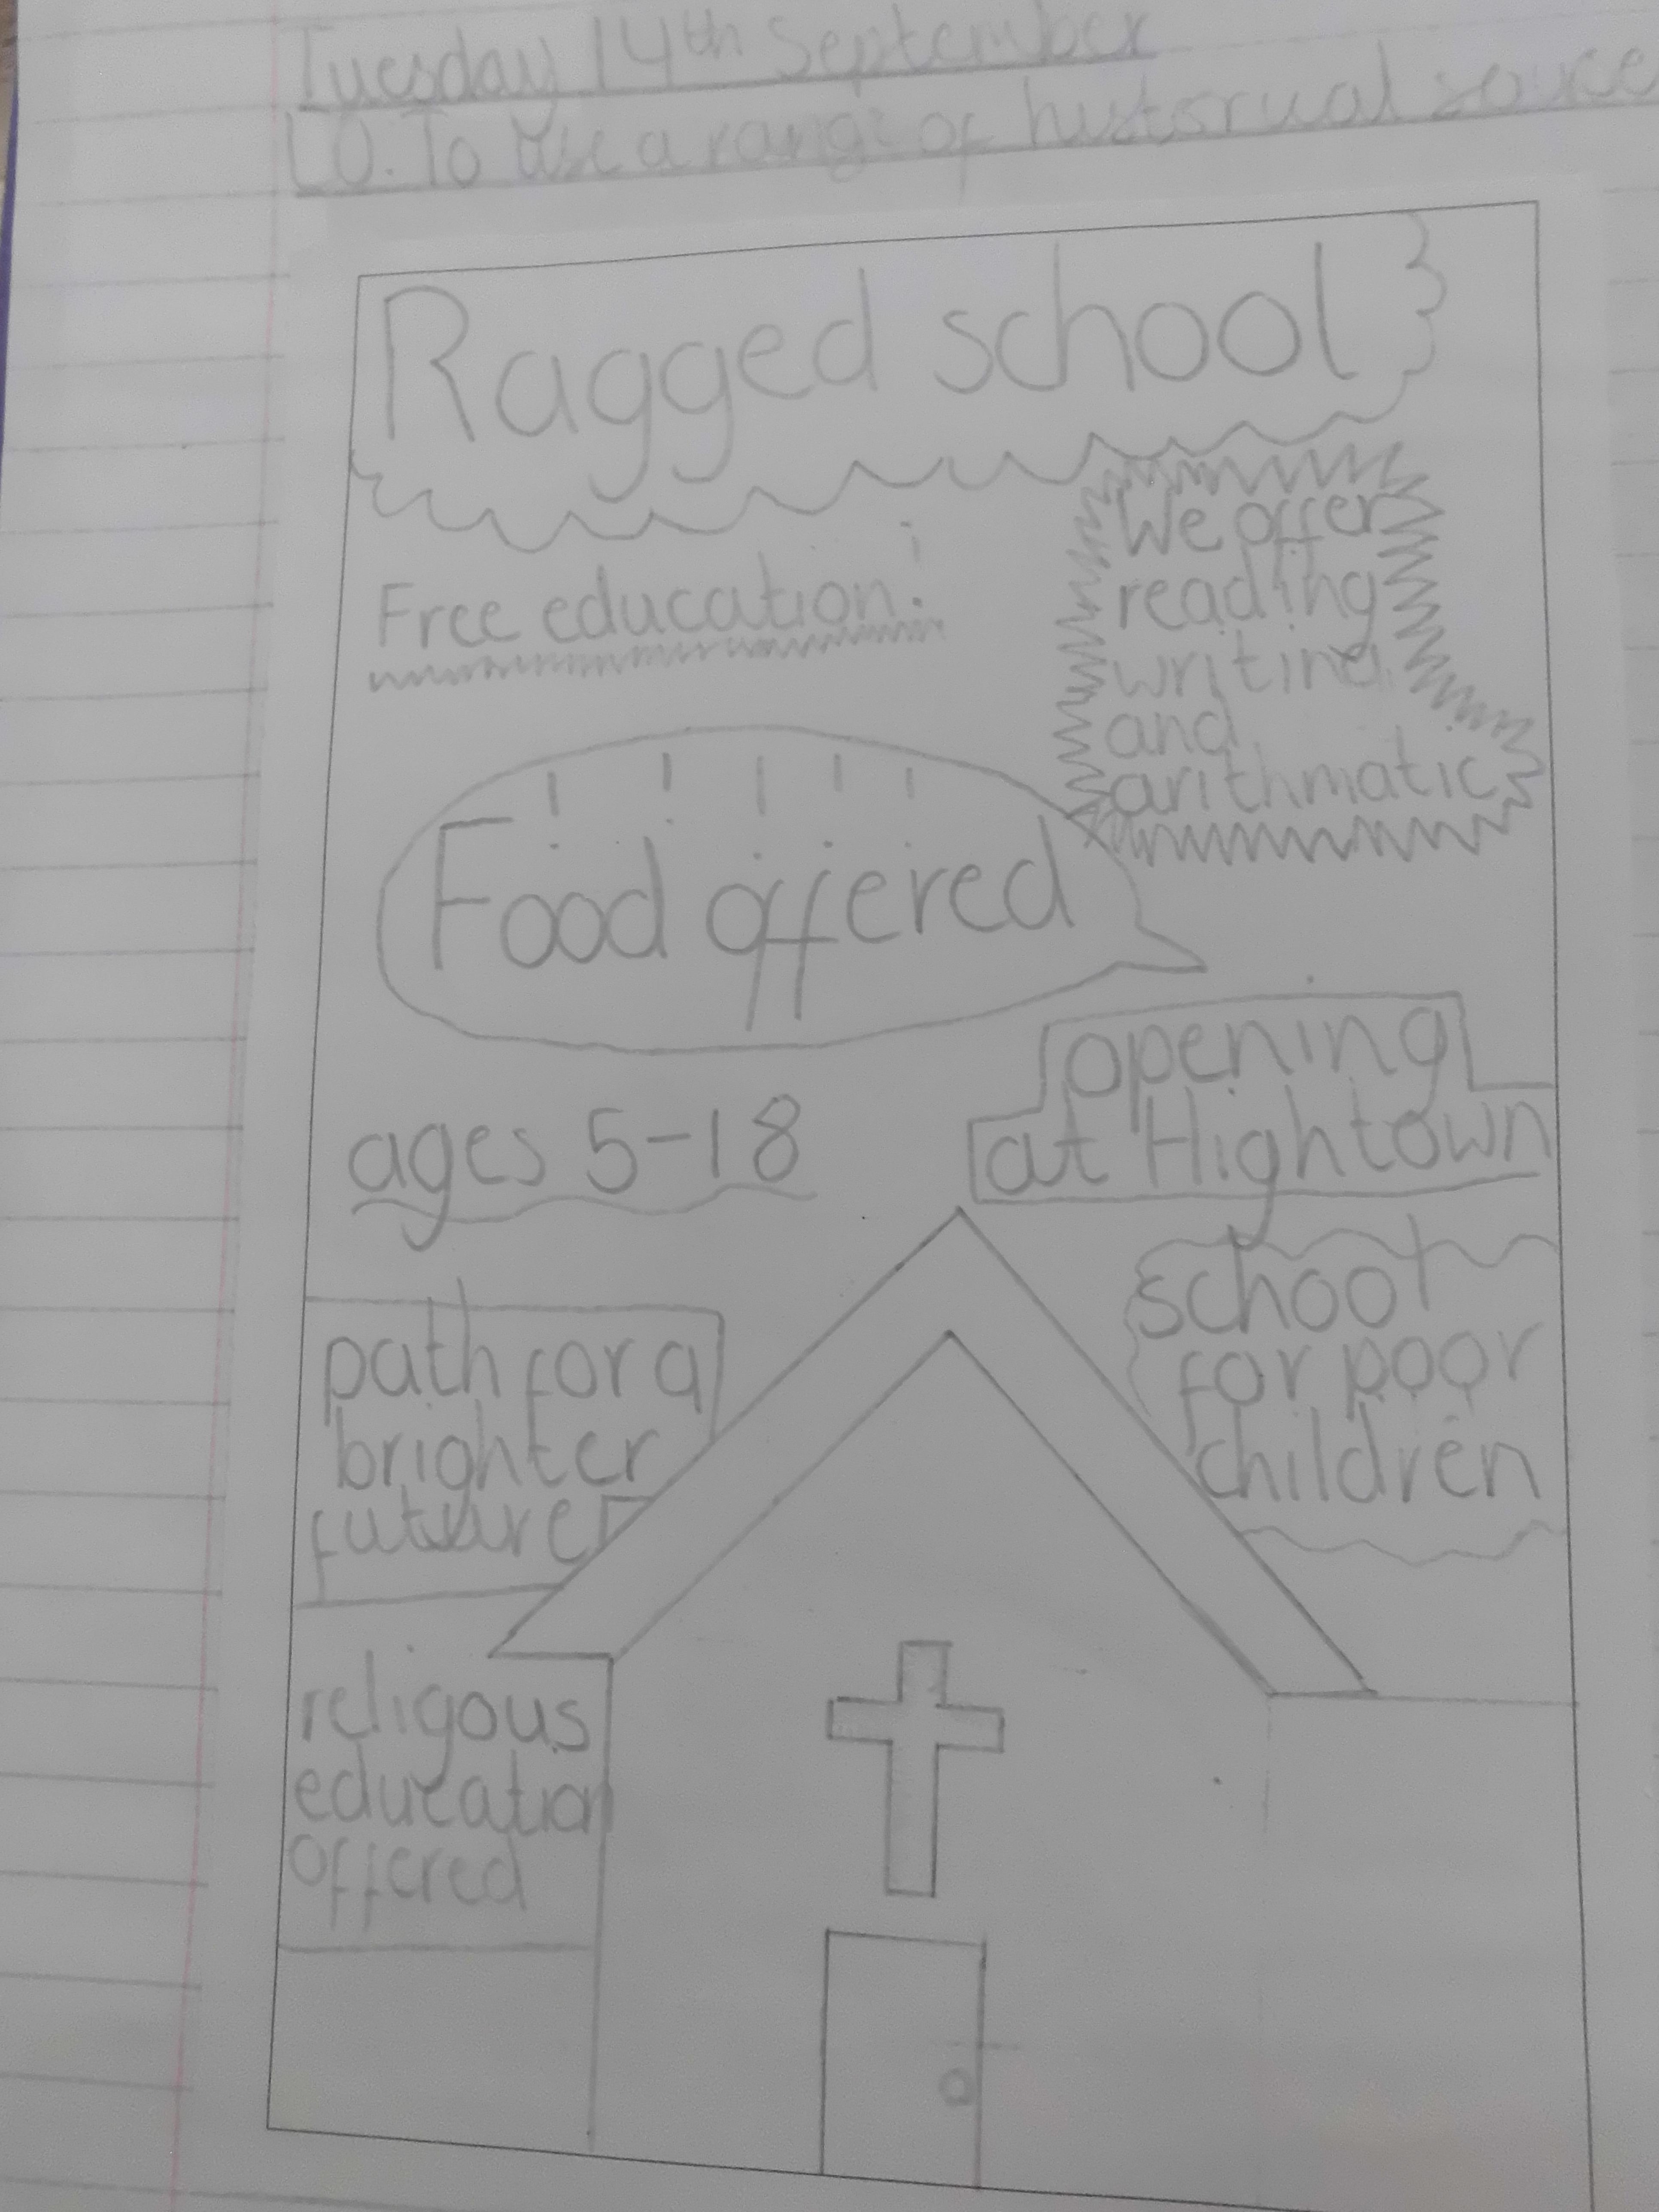 Tuesday 14th September
LO. To use a range of historical source
Ragged school
Free education!
We offer
reading
writing
and
arithmatic
! ! ! ! !
Food offered
opening
at Hightown
ages 5-18
school
for poor
children
path for a
brighter
future
religous
education
offered